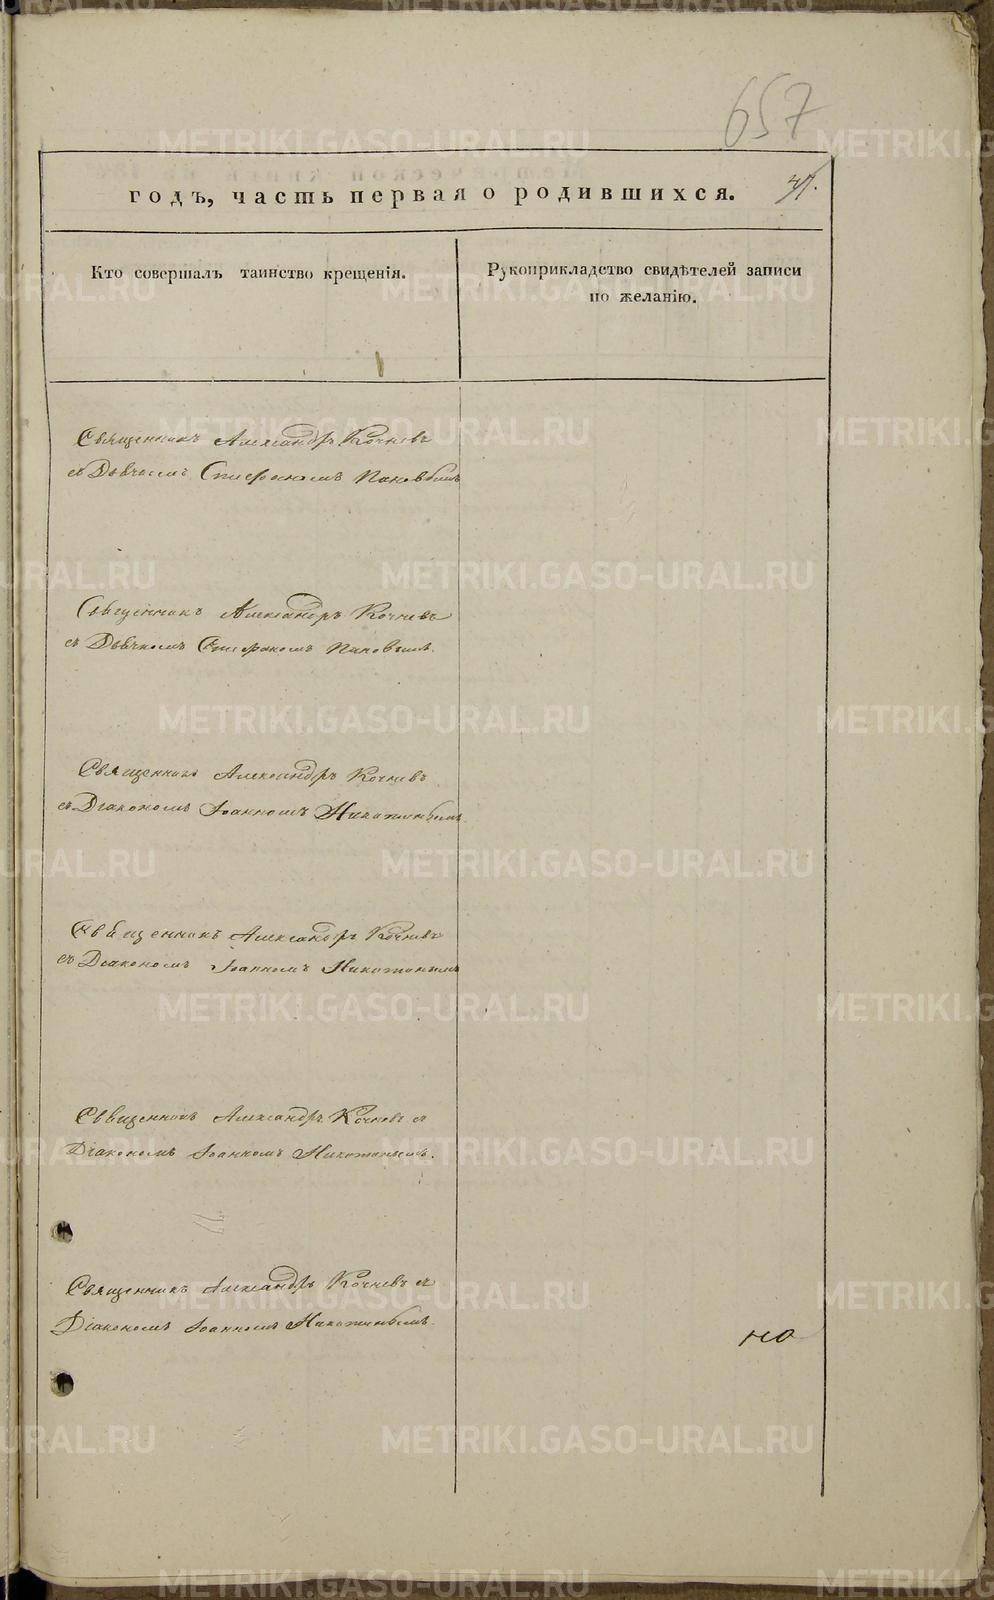 657
годъ, часть первая о родившихся.
Кто совершалъ таинство крещенія.
Рукоприкладство свидѣтелей записи
по желанію.
Священникъ Александръ Кочневъ
съ Дьячкомъ Спиридономъ Поповымъ
Священникъ Александръ Кочневъ
съ Дьячкомъ Поповымъ.
Священникъ Александръ Кочневъ
съ Діакономъ Іоанномъ Никитинымъ.
Священникъ Александръ Кочневъ
съ Діакономъ Іоанномъ
Священникъ Александръ Кочневъ съ
Діакономъ Іоанномъ
Священникъ Александръ Кочневъ съ
Діакономъ Іоанномъ Никитинымъ.
но
METRIKI.GASO-URAL.RU